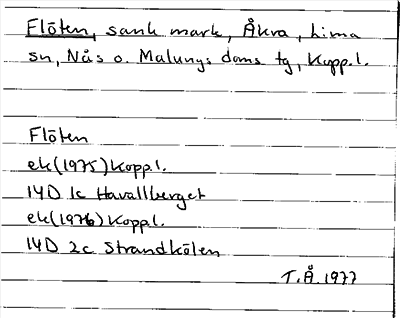 Flöten, sank mark, Åkra, Lima
sn, Nås o. Malungs doms tg, Kopp.l.
Flöten
ek(1975)Kopp.l.
14D 1c Havallberget
ek(1976)Kopp.l.
14D 2c Strandkölen
T.Å.1977